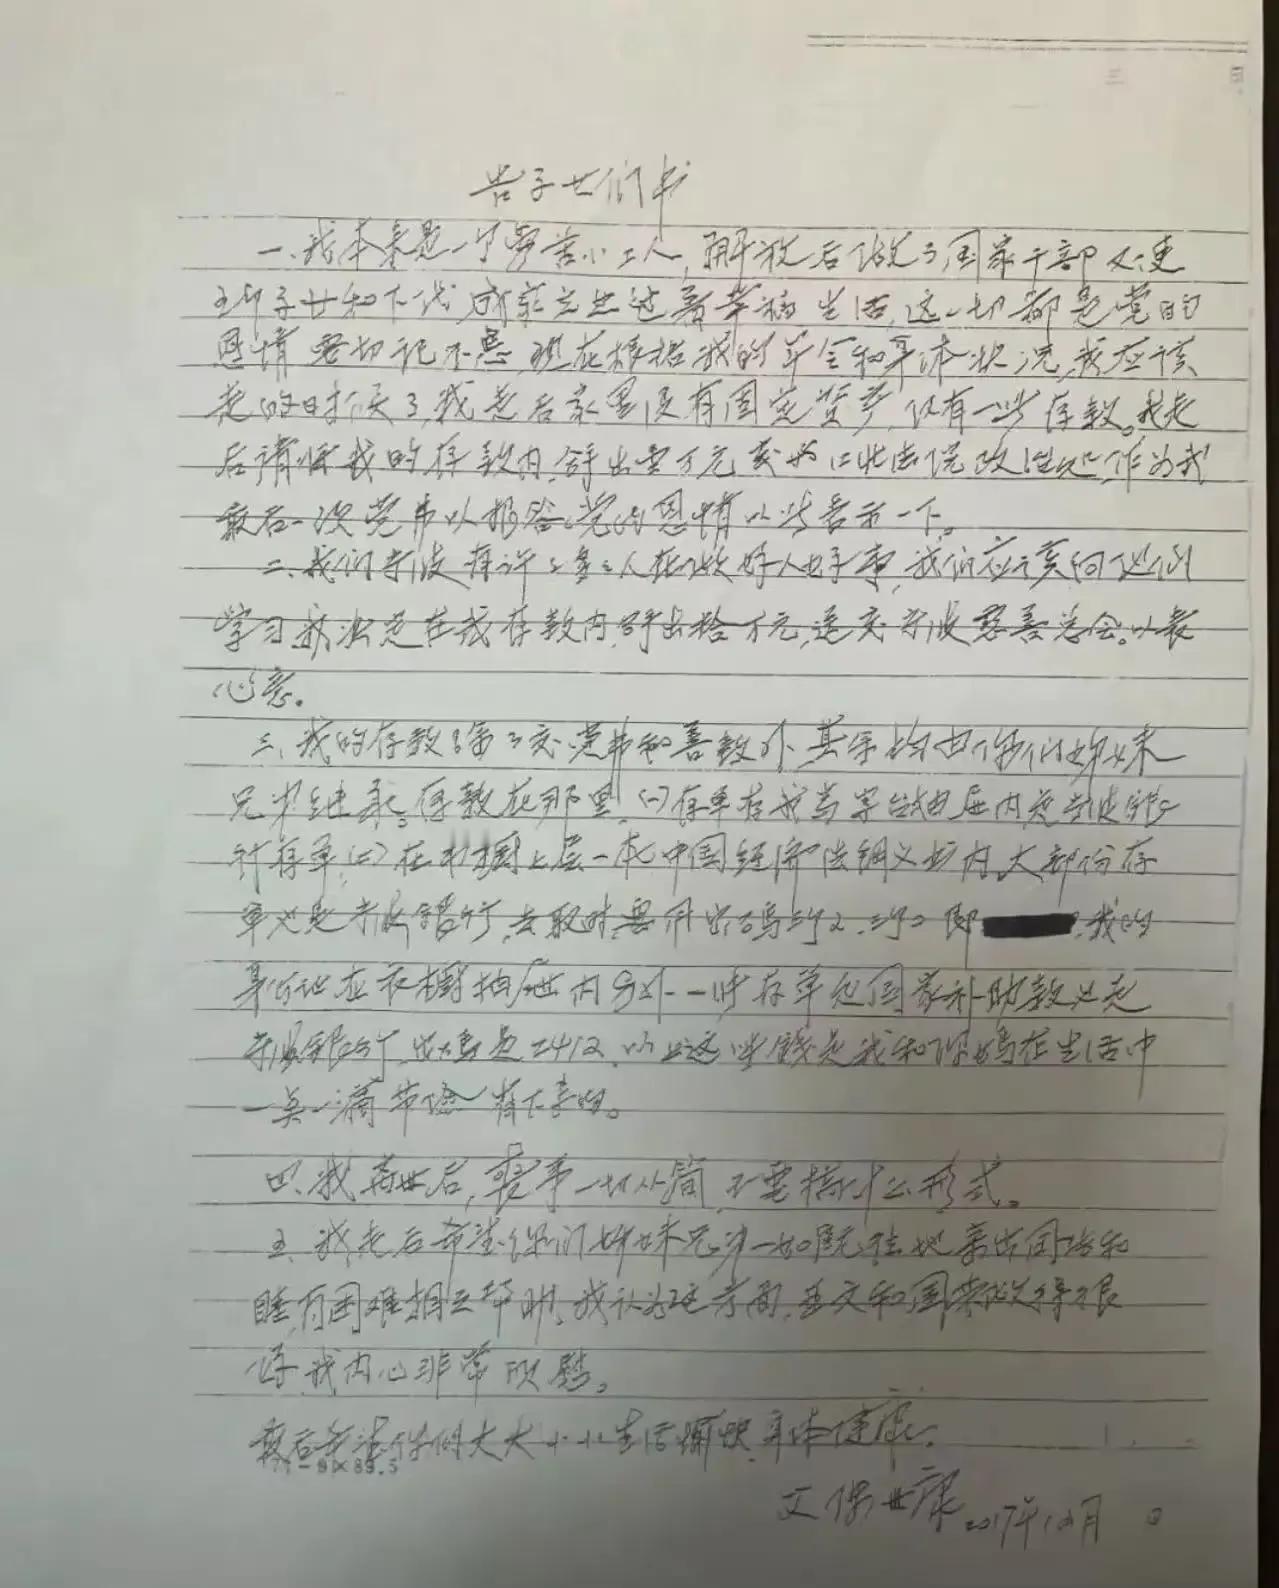 告子女们书
一、我本来是一个劳苦小工人,解放后做了国家干部又使
子女和下代成家立业过着幸福生活,这一切都是党的
恩情要切记不忘,现在根据我的年令和身体状况,我应该
走的时候了,我走后家里没有固定资产,仅有一些存款。我走
后请将我的存款内拿出壹万元交江北法院政治处,作为我
最后一次党费以报答党的恩情以此表示一下。
二、我们宁波有许许多多人在做好人好事,我们应该向他们
学习我决定在我存款内拿出拾万元,送交宁波慈善总会。以表
心意。
三、我的存款除了交党费和善款外,其余均由你们姊妹
兄弟继承。存款在那里,(一)存单在我写字台抽屉内是宁波银
行存单,(二)在书橱上层一本中国经济法纲义书内,大部份存
单也是宁波银行,去取时要用密码 即 ,我的
身份证在衣橱抽屉内另外一些存单是国家补助款也是
宁波银行,密码是2412,以上这些钱是我和你妈在生活中
一点一滴节俭省下来的。
四、我离世后,丧事一切从简,不要搞什么形式。
五、我走后希望你们姊妹兄弟一如既往地亲密团结和
睦,有困难相互帮助,我认为 和国 做得很
好,我内心非常欣慰。
最后希望你们大大小小生活愉快,身体健康。
父倪世康 2017年10月 日
77-9×89.5